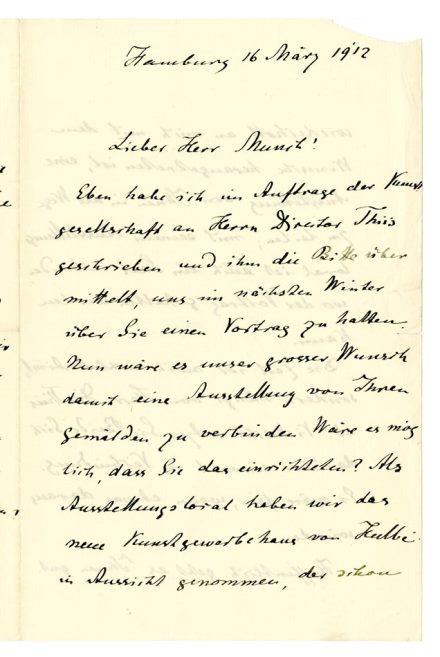 Hamburg 16 März 1912
Lieber Herr Munch!
Eben habe ich im Auftrage der Kunst
gesellschaft an Herrn Director Thiis
geschrieben und ihm die Bitte über
mittelt, uns im nächsten Winter
über Sie einen Vortrag zu halten.
Nun wäre es unser grosser Wunsch
damit eine Ausstellung von Ihren
gemälden zu verbinden Wäre es mög
lich, dass Sie das einrichteten? Als
Ausstellungslocal haben wir das
neue Kunstgewerbehaus von Hulbe
in Aussicht genommen, der schon